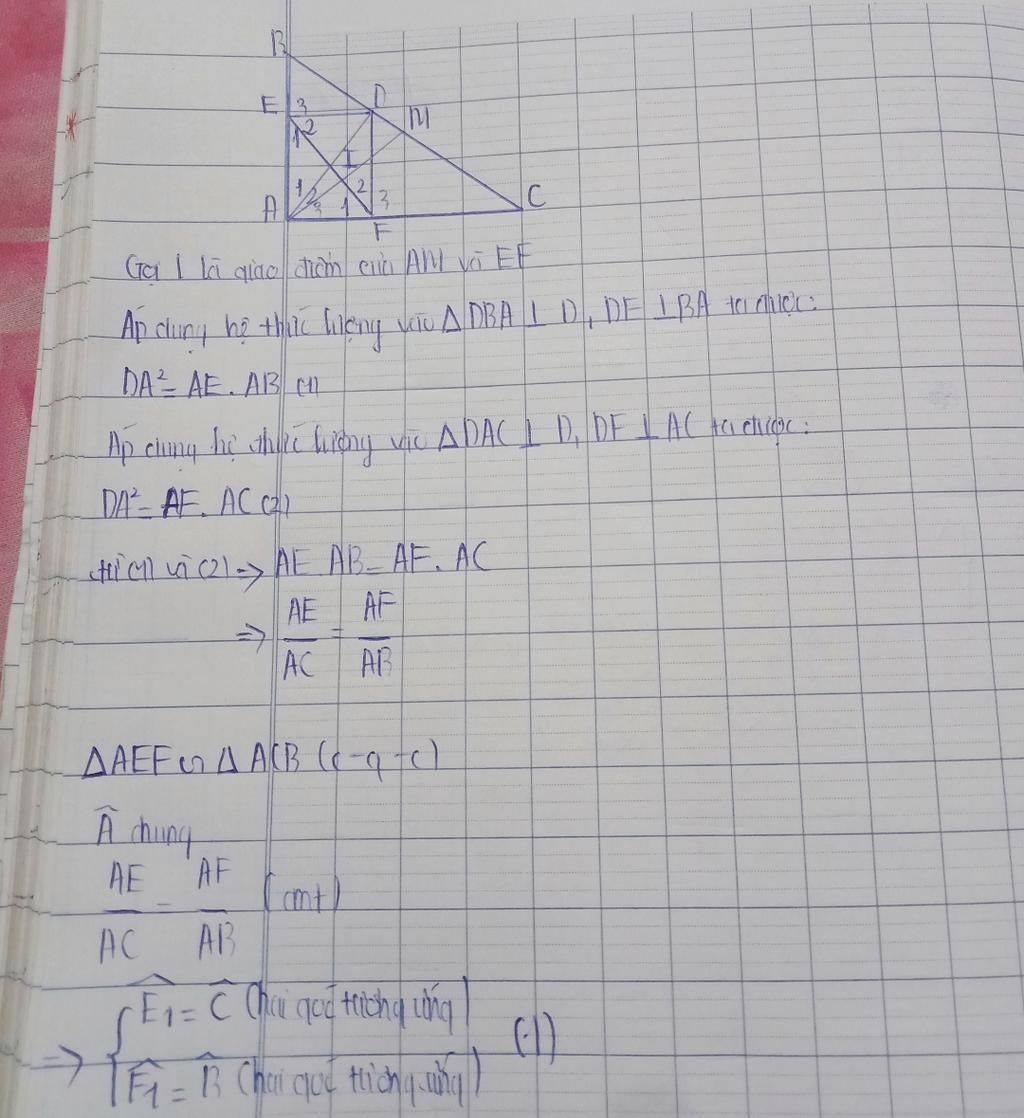 B
E 3 D
1 2 M
I
1 2 3 2
A 1 3 C
F
Gọi I là giao điểm của AM và EF
Áp dụng hệ thức lượng vào ΔDBA ⊥ D, DE ⊥ BA ta được:
DA² = AE. AB (1)
Áp dụng hệ thức lượng vào ΔDAC ⊥ D, DF ⊥ AC ta được:
DA² = AF. AC (2)
từ (1) và (2) => AE AB = AF. AC
=> AE/AC = AF/AB
ΔAEF ∽ ΔACB (c-g-c)
Â chung
AE/AC = AF/AB (cmt)
=> { Ê1 = Ĉ (hai góc tương ứng)
F̂1 = B̂ (hai góc tương ứng) (1)